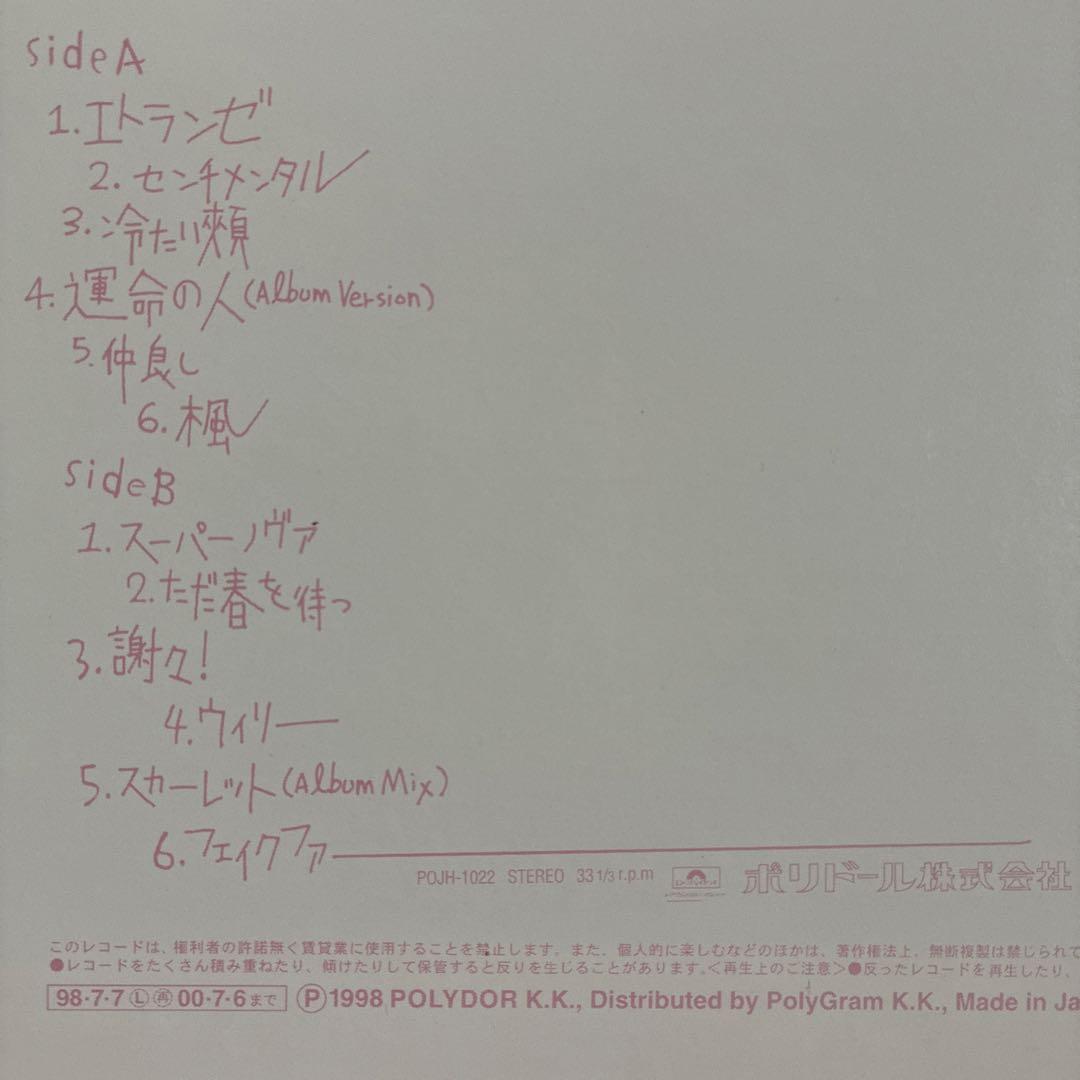 sideA
1.エトランゼ
2.センチメンタル
3.冷たい頬
4.運命の人(Album Version)
5.仲良し
6.楓
sideB
1.スーパーノヴァ
2.ただ春を待つ
3.謝々!
4.ウィリー
5.スカーレット(Album Mix)
6.フェイクファー
POJH-1022 STEREO 33 1/3 r.p.m ポリドール株式会社
このレコードは、権利者の許諾無く賃貸業に使用することを禁止します。また、個人的に楽しむなどのほかは、著作権法上、無断複製は禁じられて
●レコードをたくさん積み重ねたり、傾けたりして保管すると反りを生じることがあります。<再生上のご注意>●反ったレコードを再生したり、
98・7・7 Ⓛ ㊢ 00・7・6まで Ⓟ1998 POLYDOR K.K., Distributed by PolyGram K.K., Made in Ja